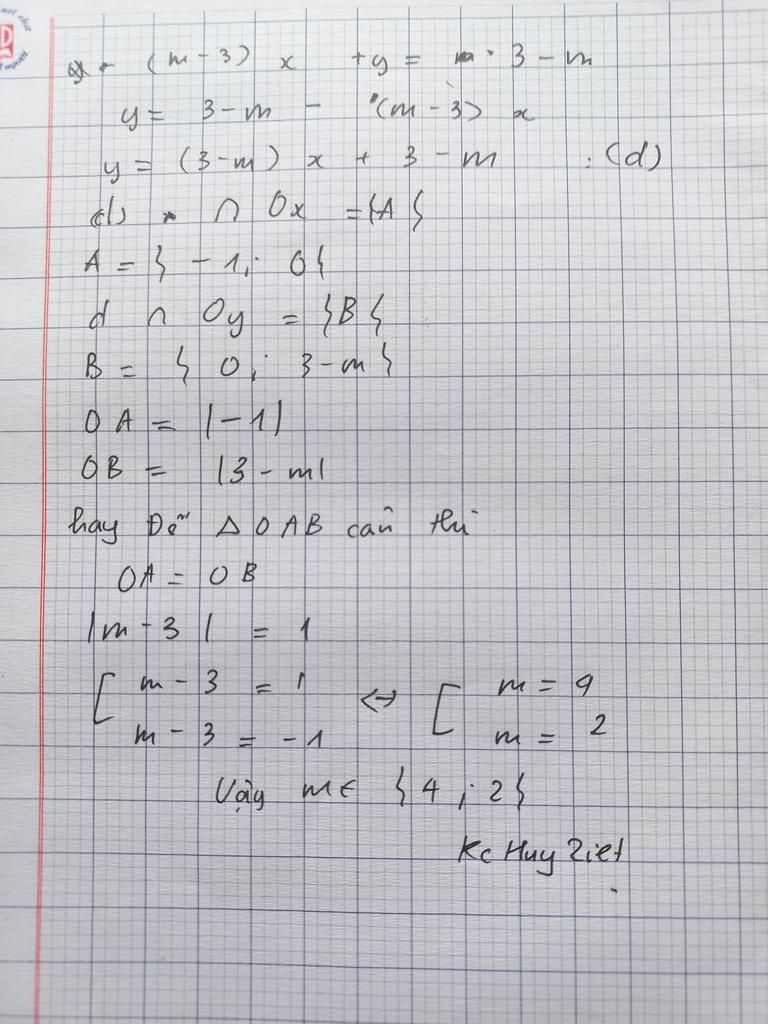 (m-3) x + y = 3 - m
y = 3 - m - (m-3) x
y = (3-m) x + 3 - m : (d)
(d) ∩ Ox = {A}
A = { -1; 0 }
d ∩ Oy = {B}
B = { 0; 3-m }
OA = |-1|
OB = |3-m|
hay Để Δ OAB cân thì
OA = OB
|m-3| = 1
[ m-3 = 1 ↔ [ m = 4
m-3 = -1 m = 2
Vậy m ∈ { 4; 2 }
Kc Huy Ziet